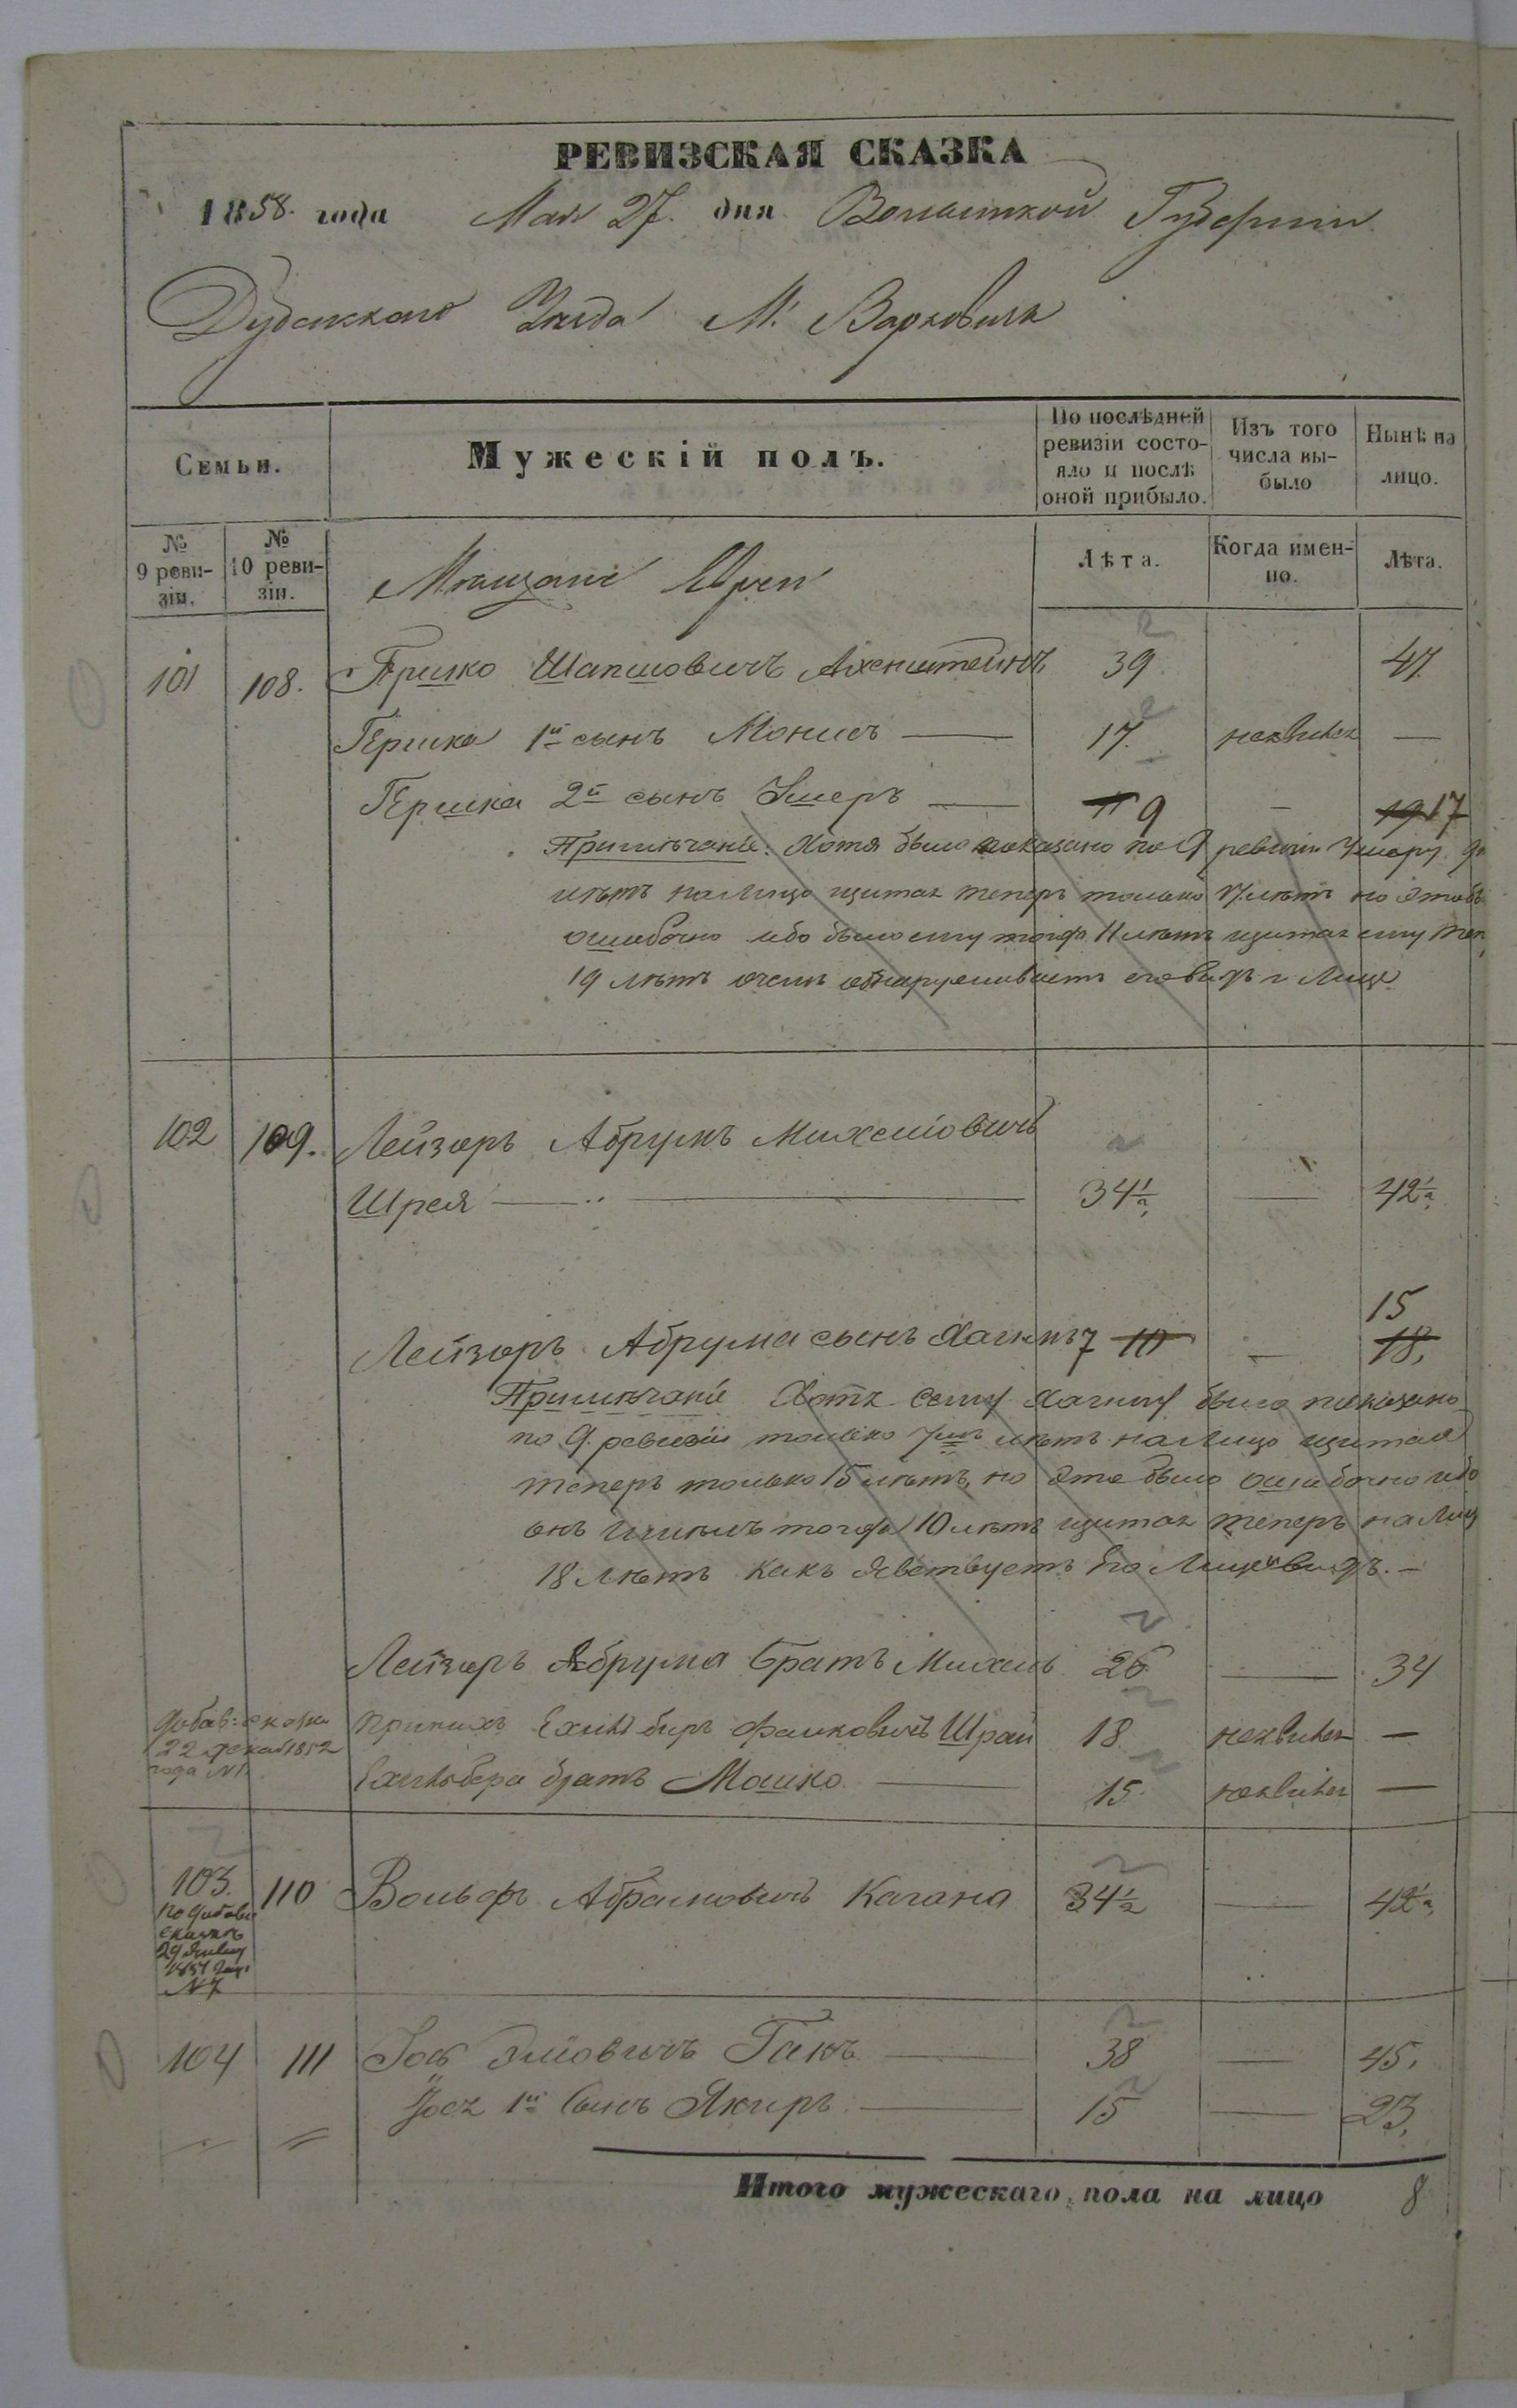 РЕВИЗСКАЯ СКАЗКА
1858. года Мая 27. дня Волынской Губернии
Дубенскаго Уезда М. Варковичъ
Семьи.
Мужескій полъ.
По послѣдней ревизіи состо-
яло и послѣ
оной прибыло.
Изъ того
числа вы-
было
Нынѣ на
лицо.
№
9 реви-
зіи.
№
10 реви-
зіи.
Мещане Евреи
Лѣта.
Когда имен-
но.
Лѣта.
101 108. Гершко Шапшовичъ 39 47.
Гершка 1й сынъ Монисъ 17. неявився —
Гершка 2й сынъ Умеръ 11 9 — 19 17
Примѣчаніе. Хотя было показано по 9 ревизіи
лѣтъ налицо щитая теперъ только 17 лѣтъ но
ошибочно ибо было ему тогда 11 лѣтъ щитая ему теп
19 лѣтъ
102 109. Лейзоръ Абрумъ Михелiовичъ
Шрея 34½ — 42½
15
Лейзоръ Абрума сынъ Хаимъ 7 10 — 18.
Примѣчаніе Хотя сему Хаиму было показано
по 9. ревизіи только 7мъ лѣтъ налицо щитая
теперъ только 15 лѣтъ, но это было ошибочно ибо
онъ имелъ тогда 10 лѣтъ щитая теперъ на лиц
18 лѣтъ какъ явствуетъ его Лице видъ. —
Лейзоръ Абрума братъ Михель 26 — 34
добав: сказки 22 декаб 1852 года №1.
Шрай 18 неявився —
братъ Мошко 15. неявився —
103. 110 Вольфъ Абрамовичъ Кагана 34½ — 42½
№7
104 111 Гакъ 38 — 45.
1й Сынъ Якиръ 15 — 23.
Итого мужескаго пола на лицо 8